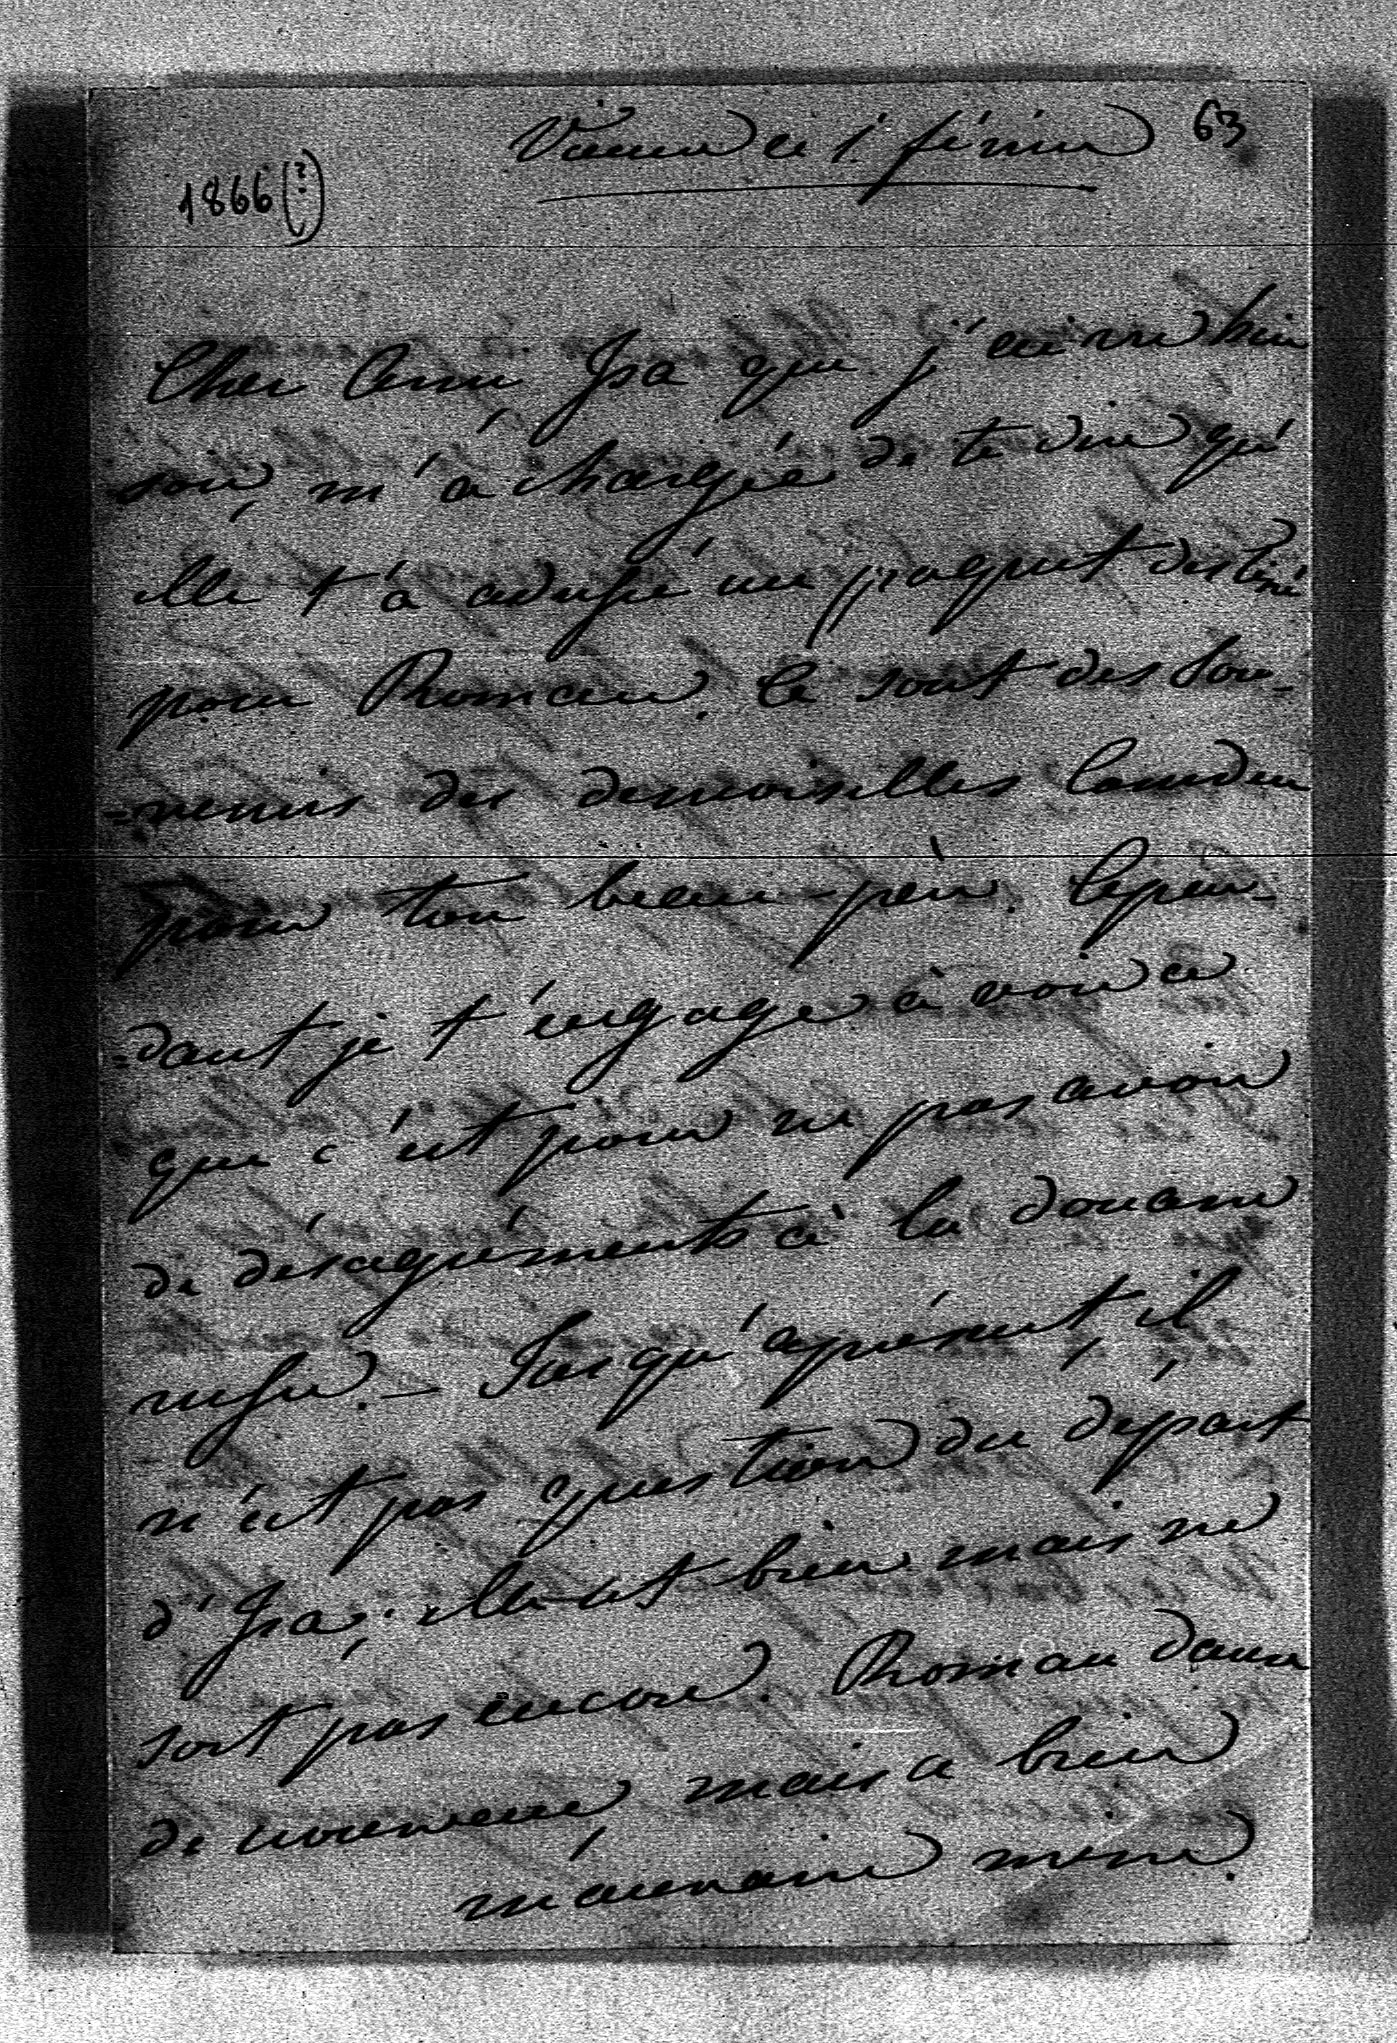 63
Vienne ce 1. février
1866 (?)
Cher Ami Isa que j'ai vu hier
soir, m'a chargée de te dire qu'
elle t'a adressé un paquet destiné
pour Roman. Ce sont des sou-
=venirs des demoiselles
pour ton beau-père. Cepen-
=dant je t'engage à voir ce
que c'est pour ne pas avoir
de désagréments à la douane
russe. – Jusqu'àprésent, il
n'est pas question du départ
d'Isa; elle est bien mais ne
sort pas encore. Roman danse
de nouveau mais a bien
mauvaise mine.